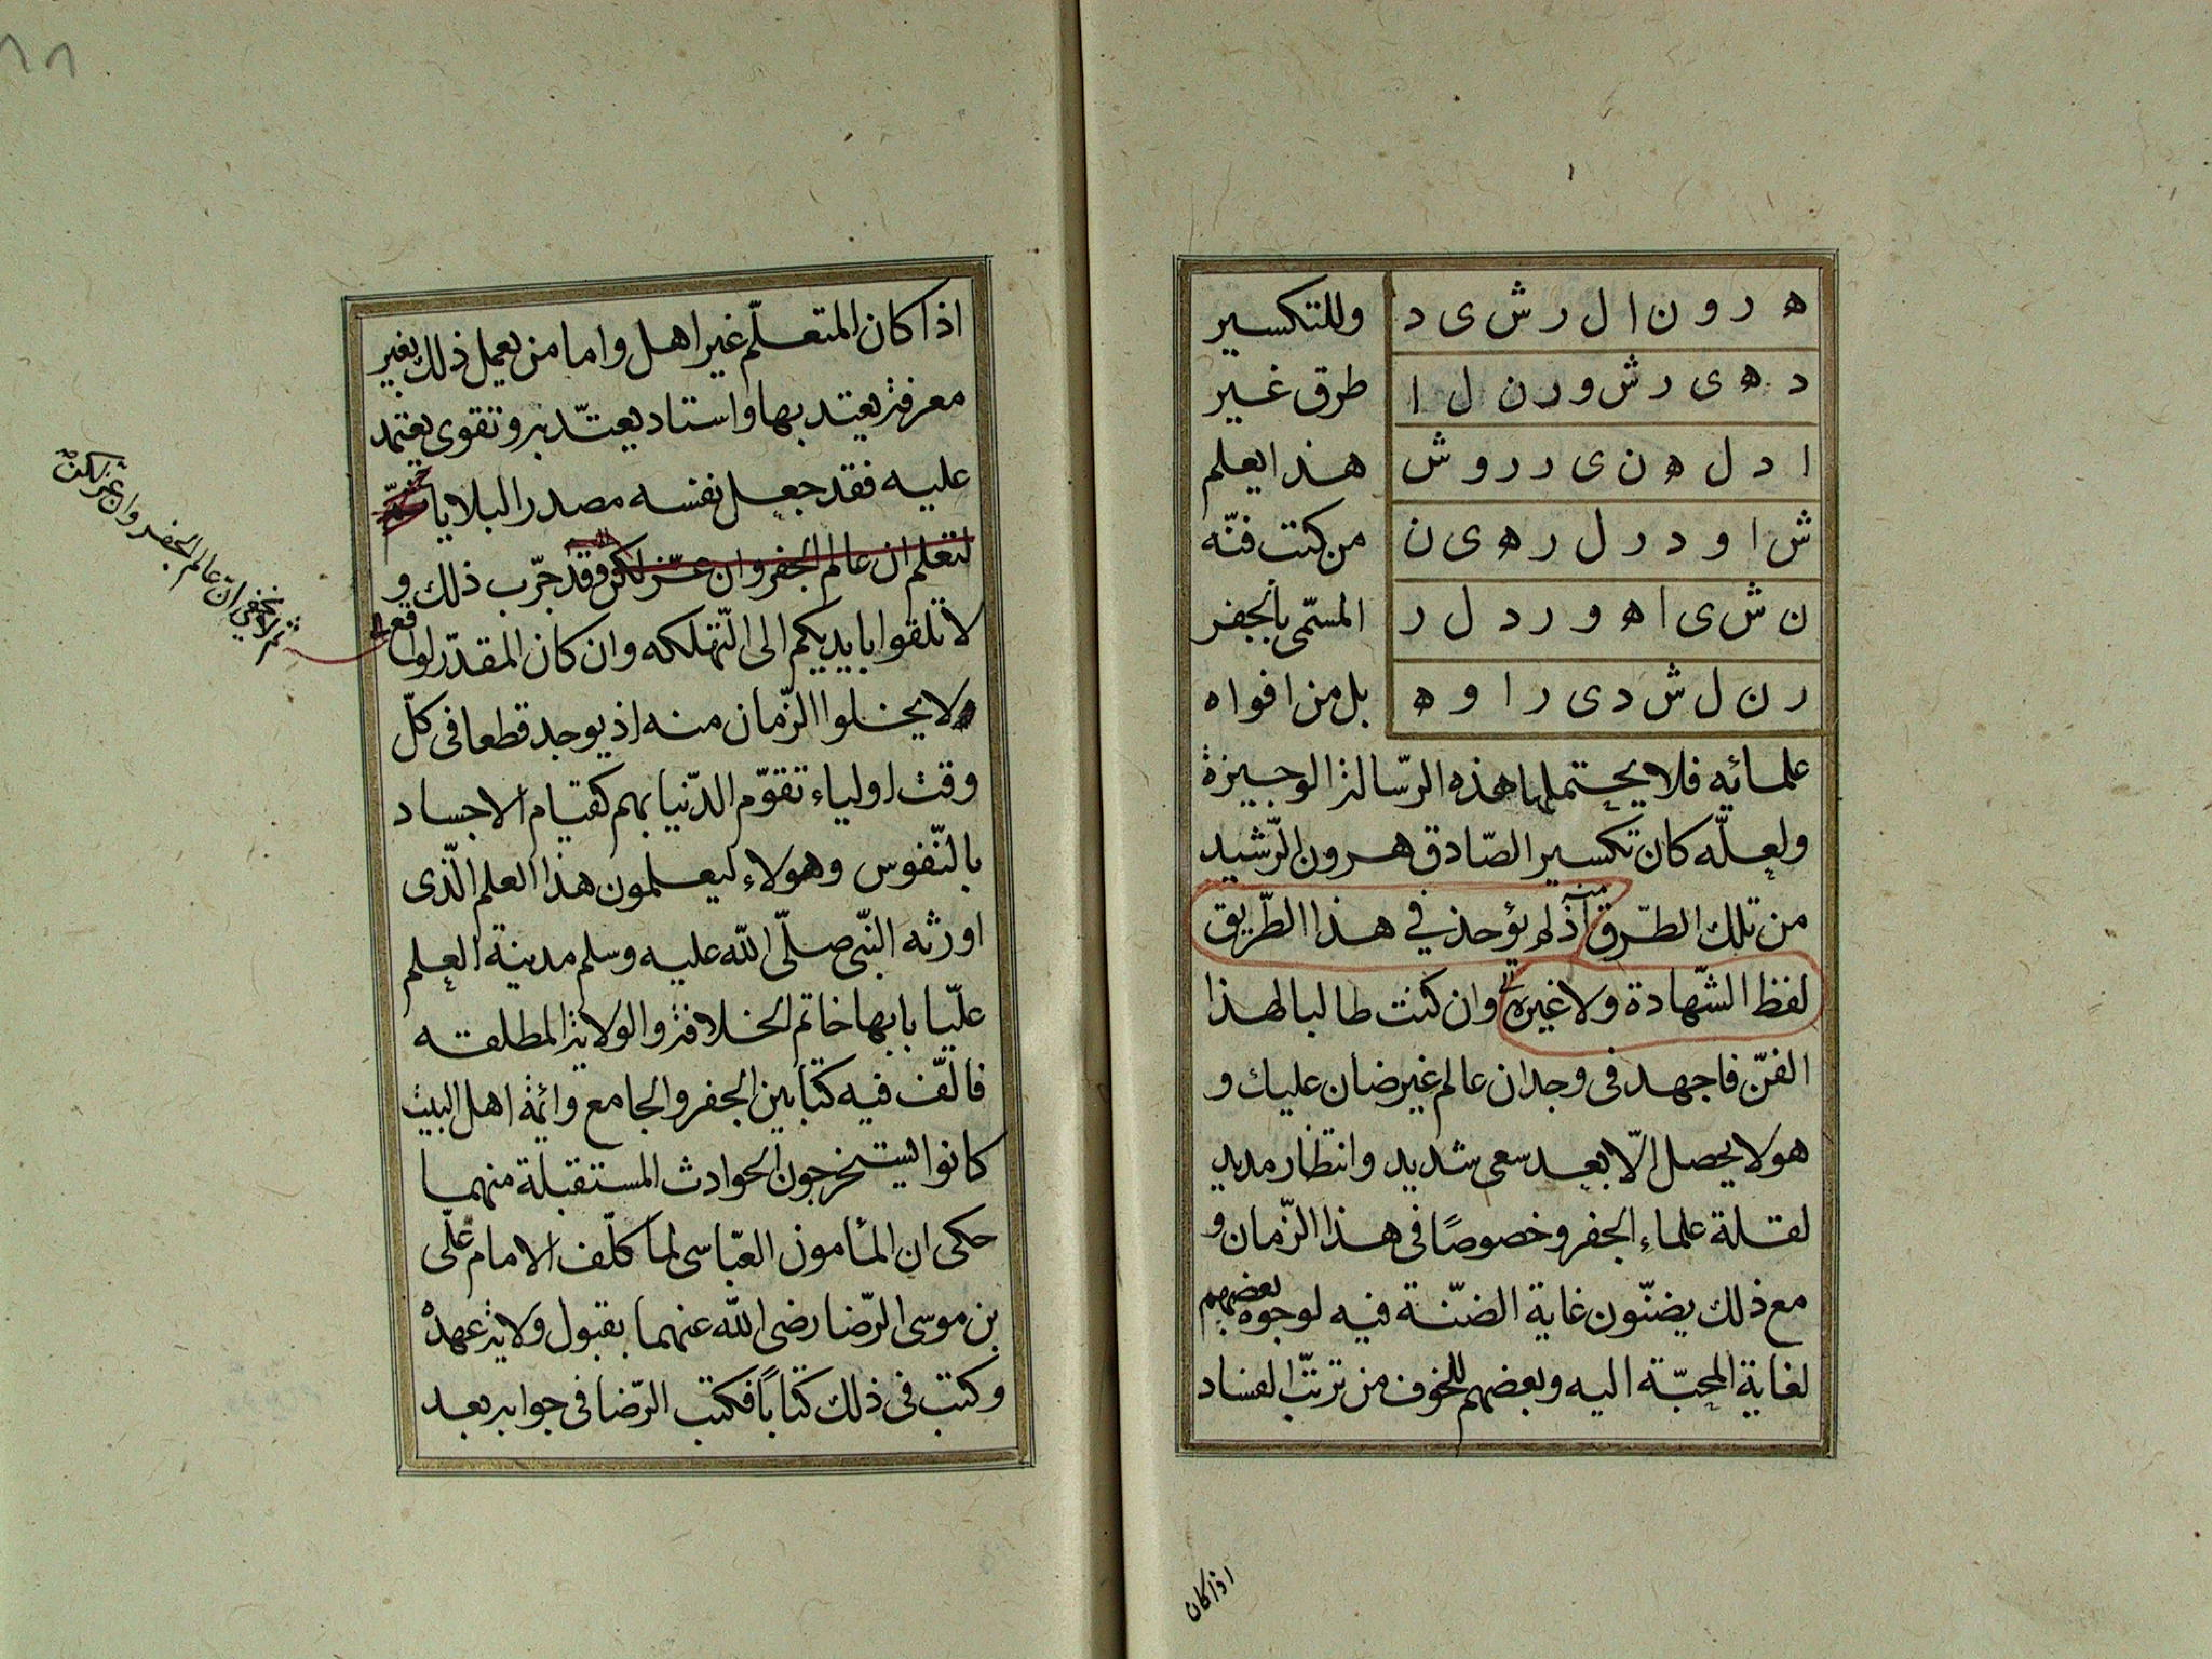 ه ر و ن ا ل ر ش ی د وللتكسير
د ه ی ر ش و ر ن ل ا طرق غير
ا د ل ه ن ی ر ر و ش هذا يعلم
ش ا و د ر ل ر ه ی ن من كتب فنّه
ن ش ی ا ه و ر د ل ر المسمّى بالجفر
ر ن ل ش د ی ر ا و ه بل من افواه
علمائه فلا يحتملها هذه الرّسالة الوجيزة
ولعلّه كان تكسير الصّادق هرون الرّشيد
من تلك الطّرق اذ لم يؤخذ في هذا الطّريق
لفظ الشّهادة ولا غيره وان كنت طالبا لهذا
الفنّ فاجهد فى وجدان عالم غير ضان عليك و
هو لا يحصل الّا بعد سعى شديد وانتظار مديد
لقلة علماء الجفر وخصوصًا فى هذا الزّمان و
مع ذلك يضنّون غاية الضنّة فيه لوجوه بعضهم
لغاية المحبّة اليه وبعضهم للخوف من ترتّب الفساد
اذا كان
اذا كان المتعلّم غير اهل واما من يعمل ذلك بغير
معرفة يعتد بها واستاد يعتّد به وتقوى يعتمد
عليه فقد جعل نفسه مصدر البلايا
لتعلم ان عالم الجفر وان عزّ لكن فقد جرّب ذلك و
لا تلقوا بايديكم الى التّهلكه وان كان المقدّر لواقع
لا يخلوا الزّمان منه اذ يوجد قطعا فى كلّ
وقت اولياء تقوّم الدّنيا بهم كقيام الاجساد
بالنّفوس وهولاء ليعلمون هذا العلم الّذى
اورثه النّبى صلّى الله عليه وسلم مدينة العلم
عليّا بابها خاتم الخلافة والولاية المطلقه
فالّف فيه كتابين الجفر والجامع وائمة اهل البيت
كانوا ليستخرجون الحوادث المستقبلة منهما
حكى ان المأمون العبّاسى لما كلّف الامام علّى
بن موسى الرّضا رضى الله عنهما بقبول ولاية عهده
وكتب فى ذلك كتابًا فكتب الرّضا فى جوابه بعد
ثم لا يخفى ان عالم الجفر وان عز لكن